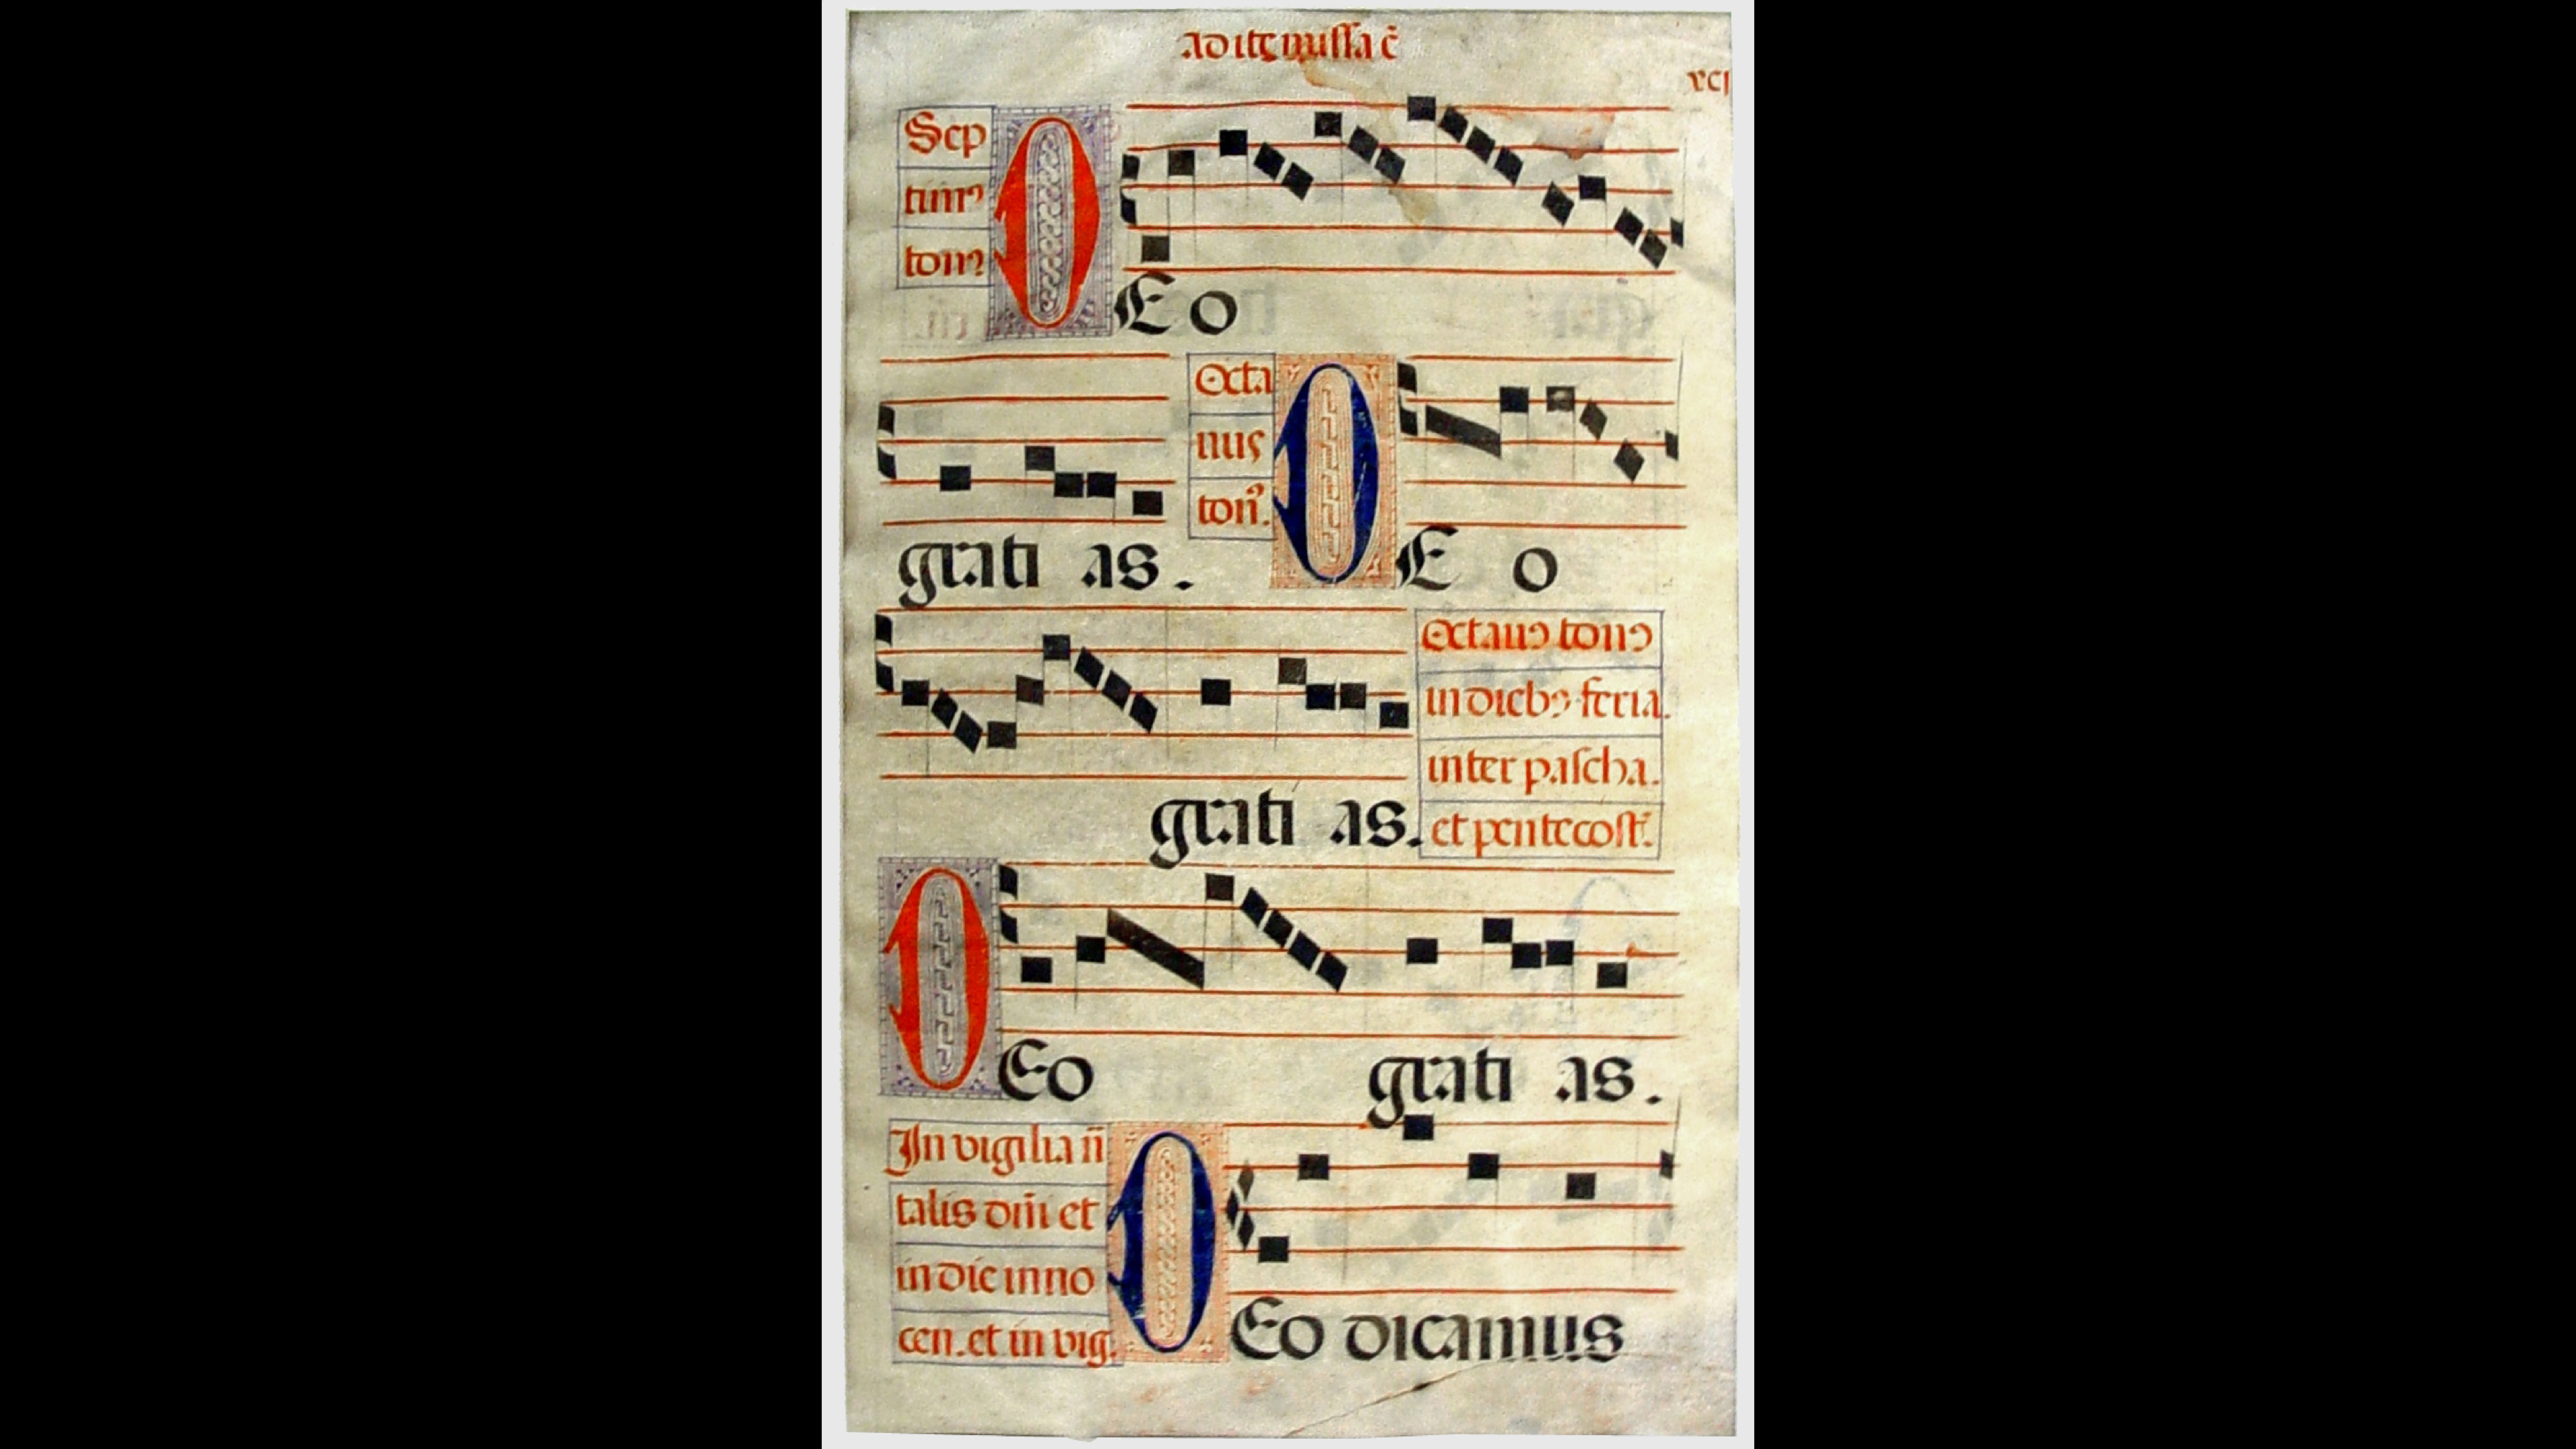 ad ite missa ē
xcj
Sep
timꝰ
tonꝰ
DEo
grati as.
Octa
uus
ton᷒.
DE o
grati as.
Octauꝰ tonꝰ
in diebꝫ feria.
inter pascha.
et pentecost.
DEo grati as.
In vigilia n̄
talis dn̄i et
in die inno
cen. et in vig.
DEo dicamus